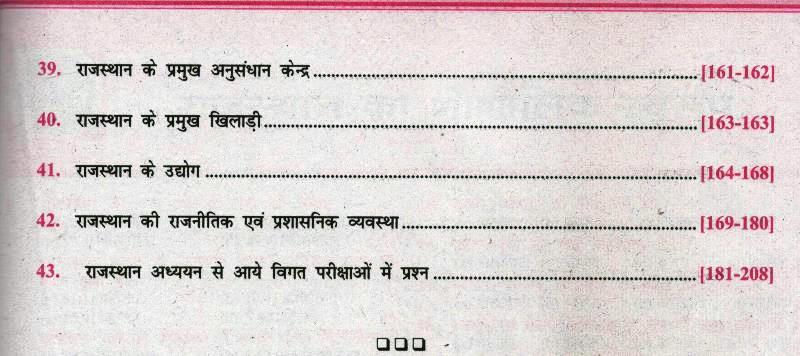 39. राजस्थान के प्रमुख अनुसंधान केन्द्र ........................................ [161-162]
40. राजस्थान के प्रमुख खिलाड़ी ........................................ [163-163]
41. राजस्थान के उद्योग ........................................ [164-168]
42. राजस्थान की राजनीतिक एवं प्रशासनिक व्यवस्था ........................................ [169-180]
43. राजस्थान अध्ययन से आये विगत परीक्षाओं में प्रश्न ........................................ [181-208]